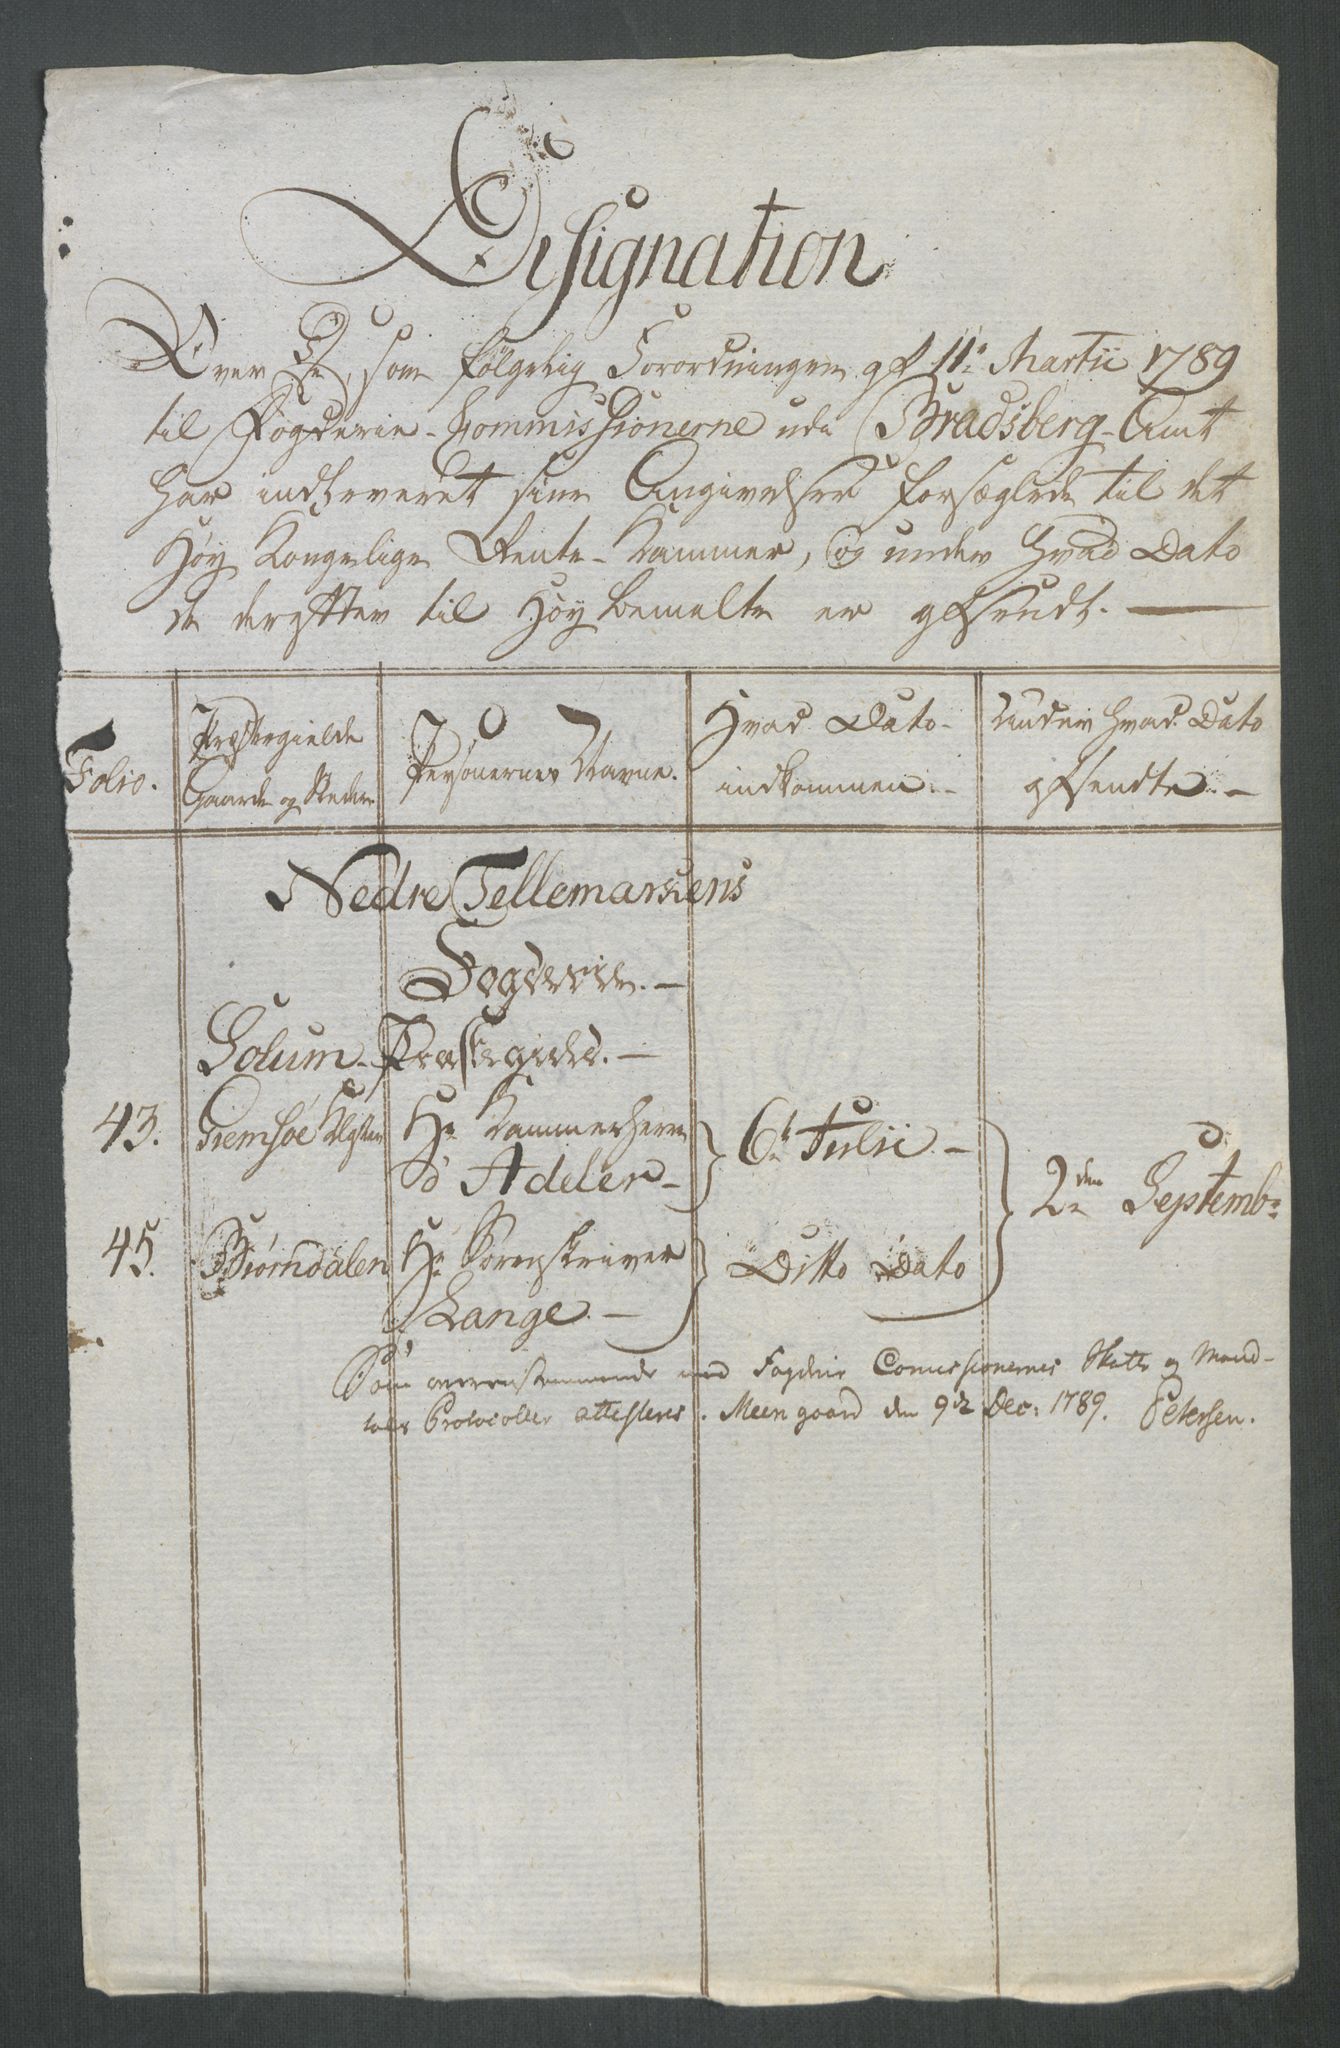 Designation
Over De, som følgelig Forordningen af 11te Martii 1789
til Fogderie-Commissionerne udi Bradsberg-Amt
har indleveret sine Angivelser forseglede til det
Høy Kongelige Rente-Kammer, og under hvad Dato
de derefter til Høybemelte er afsendt. —
Folio.
Præstegielde
Gaarde og Steder
Personernes Navne.
Hvad Dato
indkommen. -
Under hvad Dato
afsendte. -
Nedre Tellemarkens
Fogderie. —
Solum-Præstegield. —
43. Giemsøe Kloster Hr Kammerherre
Adeler - 6te Julii. - 2den Septembr
45. Biørndalen Hr Sorenskriver
Lange. - Ditto Dato
Som overensstemmende med Fogderie Comissionernes Skatte og Mand-
tals Protocoller attesteris. Meen gaard den 9de Dec: 1789. Petersen.